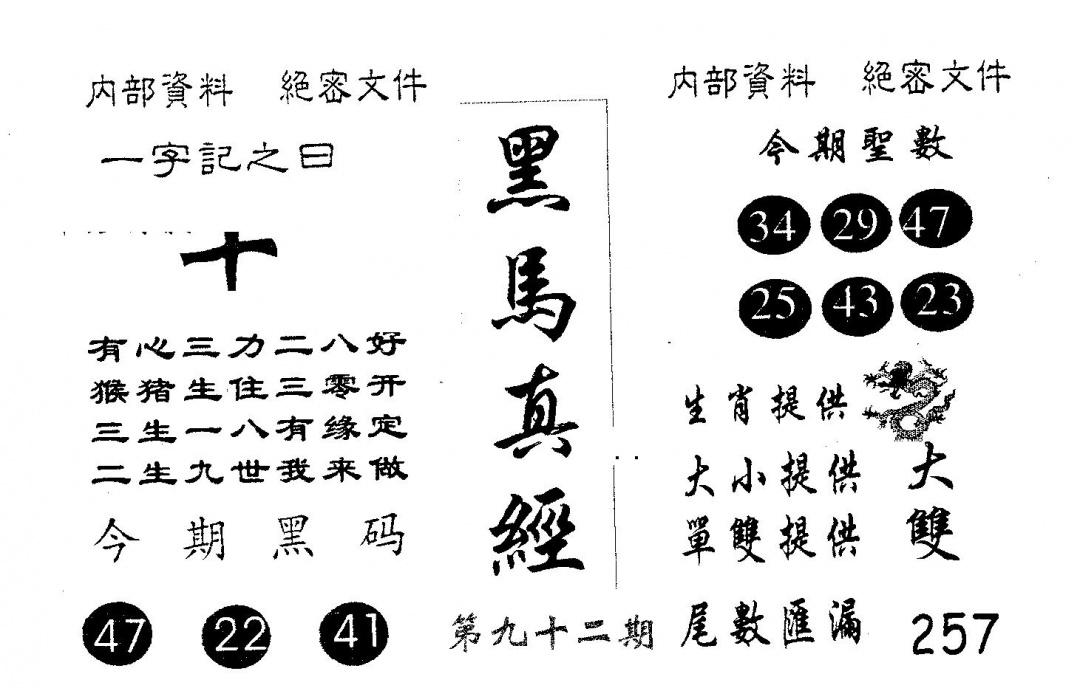 内部資料 絕密文件
一字記之曰
十
有心三力二八好
猴猪生住三零开
三生一八有缘定
二生九世我来做
今期黑码
47 22 41
黑馬真經
第九十二期
内部資料 絕密文件
今期聖數
34 29 47
25 43 23
生肖提供
大小提供 大
單雙提供 雙
尾數匯漏 257